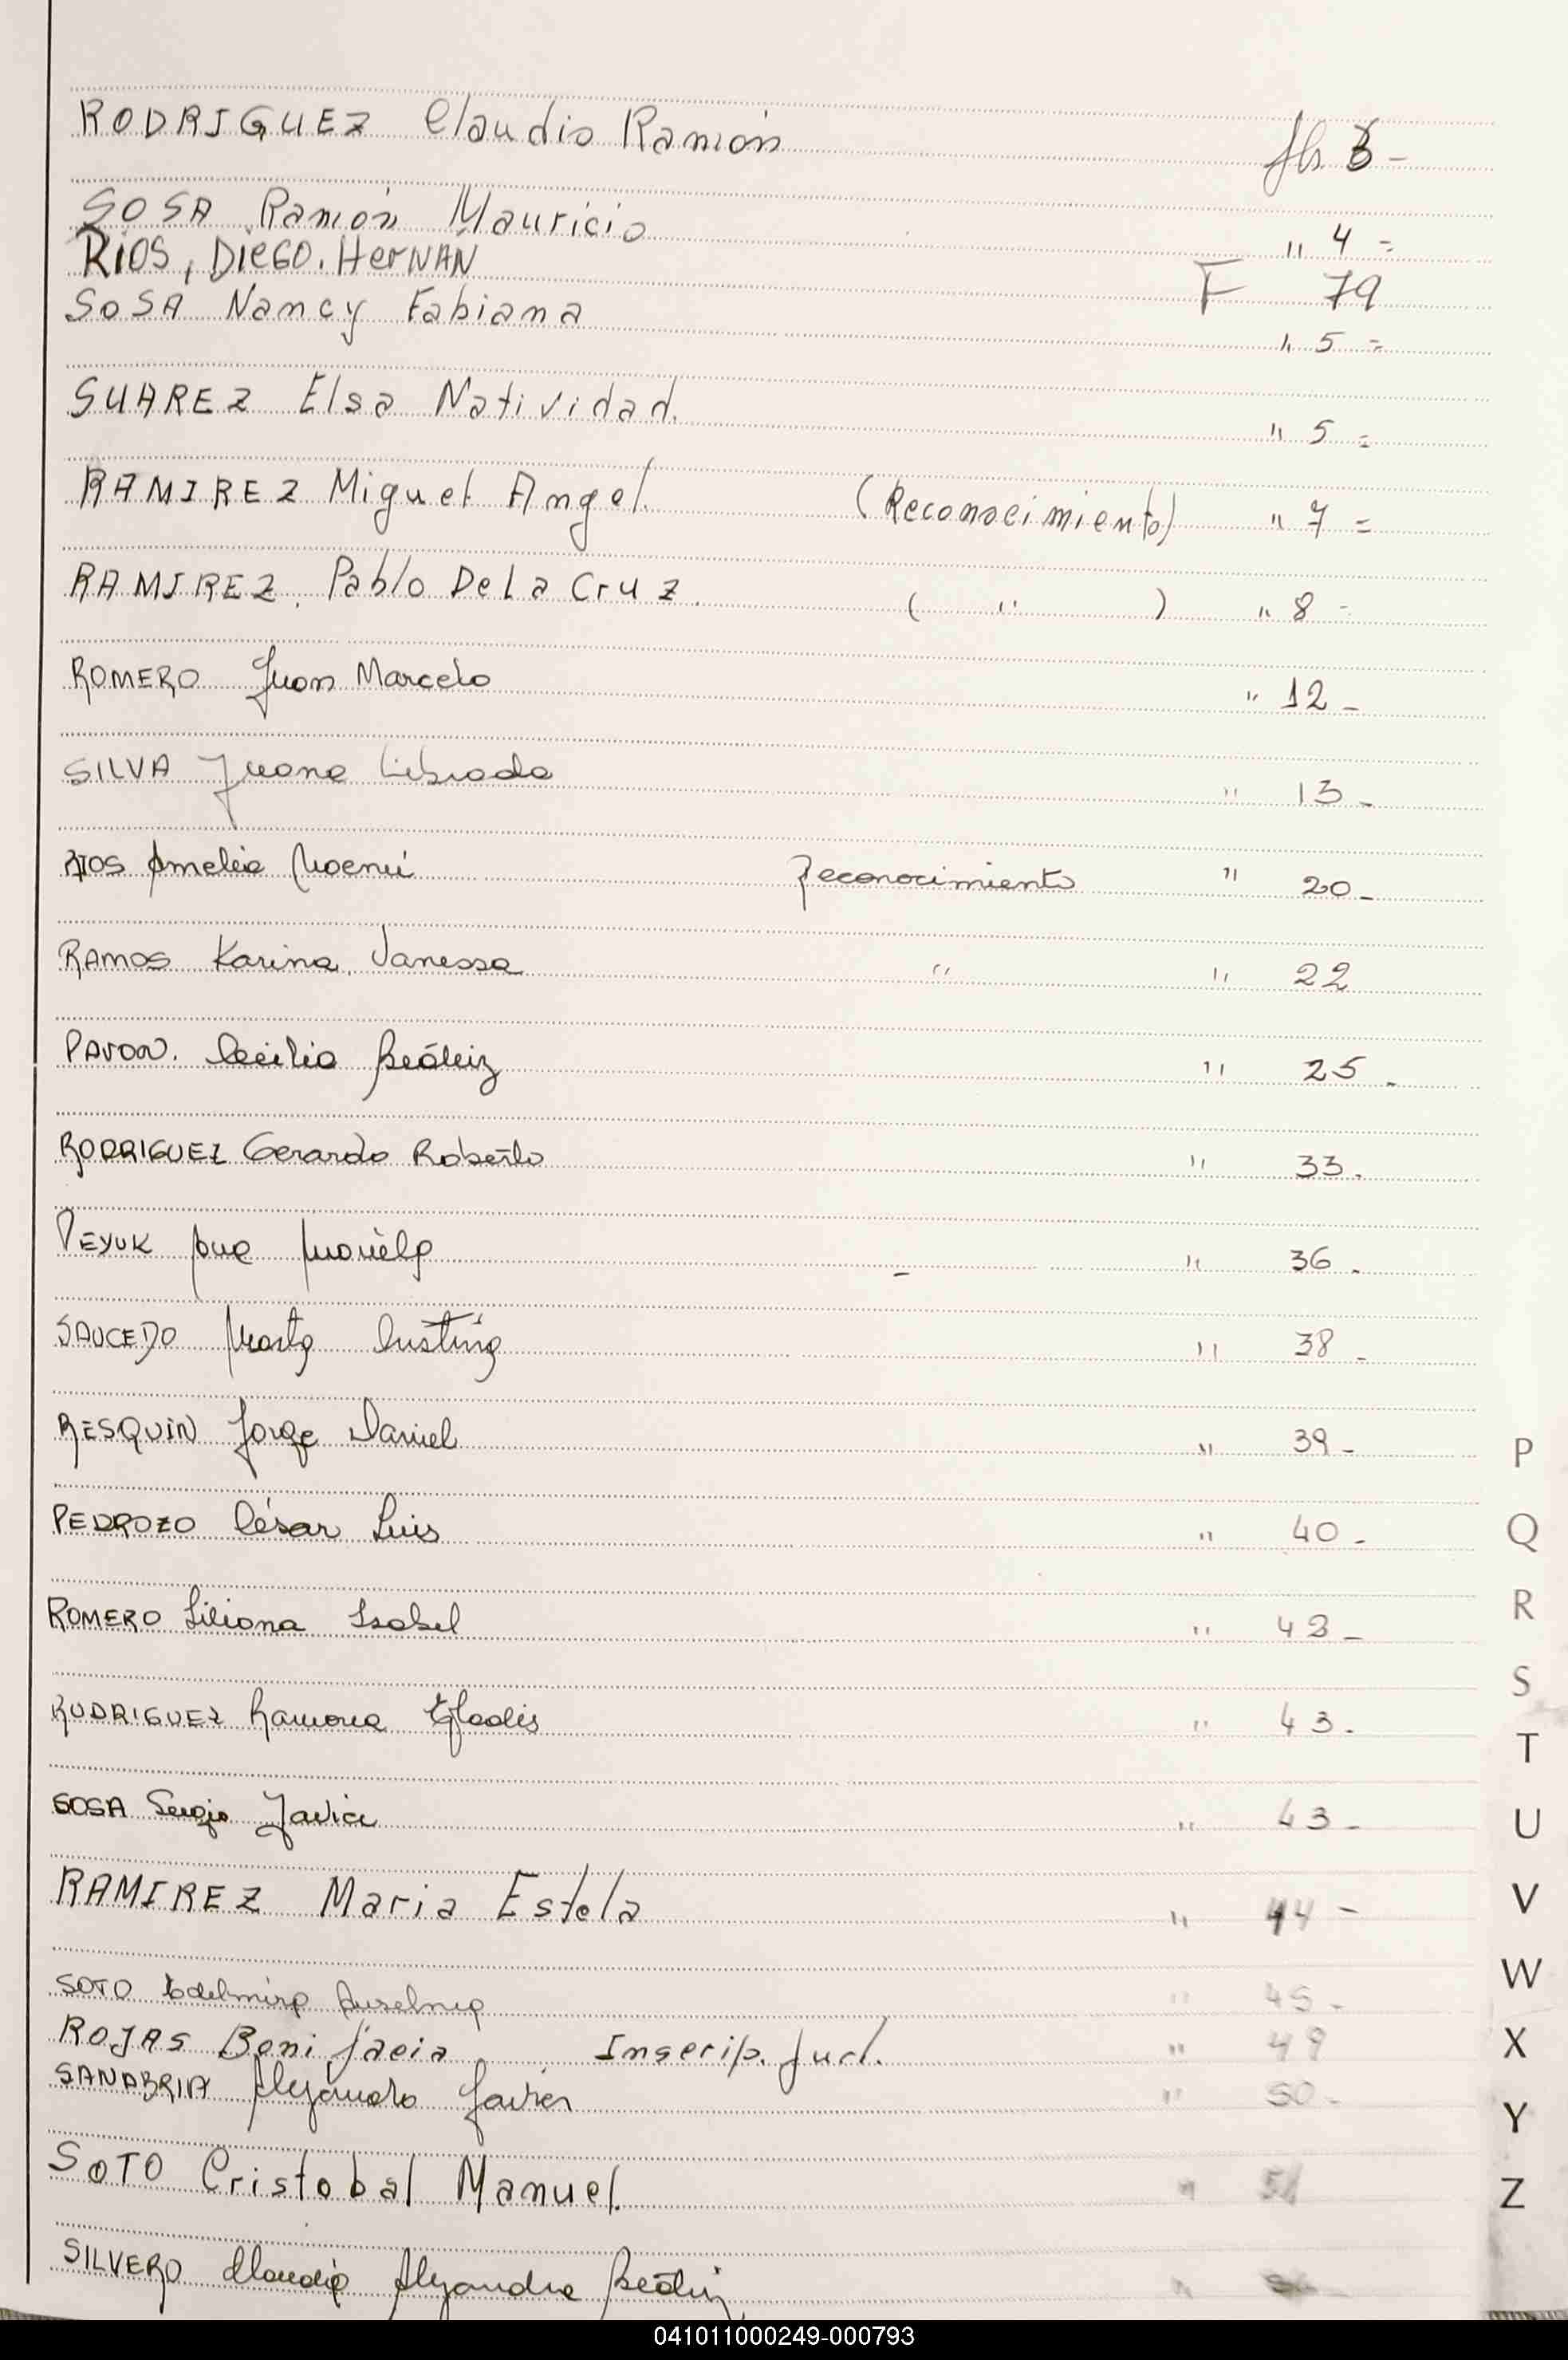 RODRIGUEZ Claudio Ramón fls 3 -
SOSA Ramón Mauricio " 4 =
RIOS, DIEGO. HERNAN F 79
SOSA Nancy Fabiana " 5 =
SUAREZ Elsa Natividad. " 5 =
RAMIREZ Miguel Angel. (Reconocimiento) " 7 =
RAMIREZ. Pablo De La Cruz. ( " ) " 8 -
ROMERO Juan Marcelo " 12 -
SILVA Juana Librada " 13 -
RIOS Amelia Noemí Reconocimiento " 20 -
RAMOS Karina Vanessa " " 22
PAVON. Cecilia Beátriz " 25 -
RODRIGUEZ Gerardo Roberto " 33.
PEYUK Ana Mariela - " 36 -
SAUCEDO Marta Cristina " 38 -
RESQUIN Jorge Daniel " 39 -
PEDROZO César Luis " 40 -
ROMERO Liliana Isabel " 43 -
RODRIGUEZ Ramona Gladis " 43 -
SOSA Sergio Javier " 43 -
RAMIREZ Maria Estela " 44 -
SOTO Edelmira Anselma " 45 -
ROJAS Bonifacia Inscrip. Jud. " 49
SANABRIA Alejandro Javier " 50 -
SOTO Cristobal Manuel. "
SILVERO Claudia Alejandra Beátriz "
P
Q
R
S
T
U
V
W
X
Y
Z
041011000249-000793